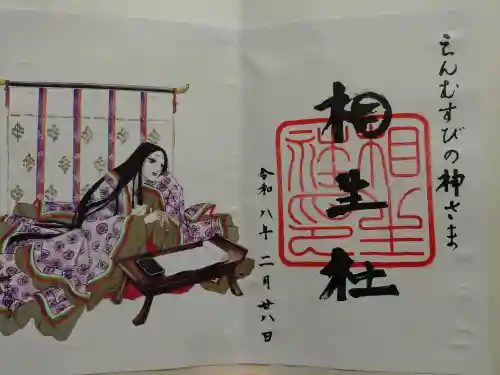 えんむすびの神さま
相生社
相生社印
令和八年二月廿八日